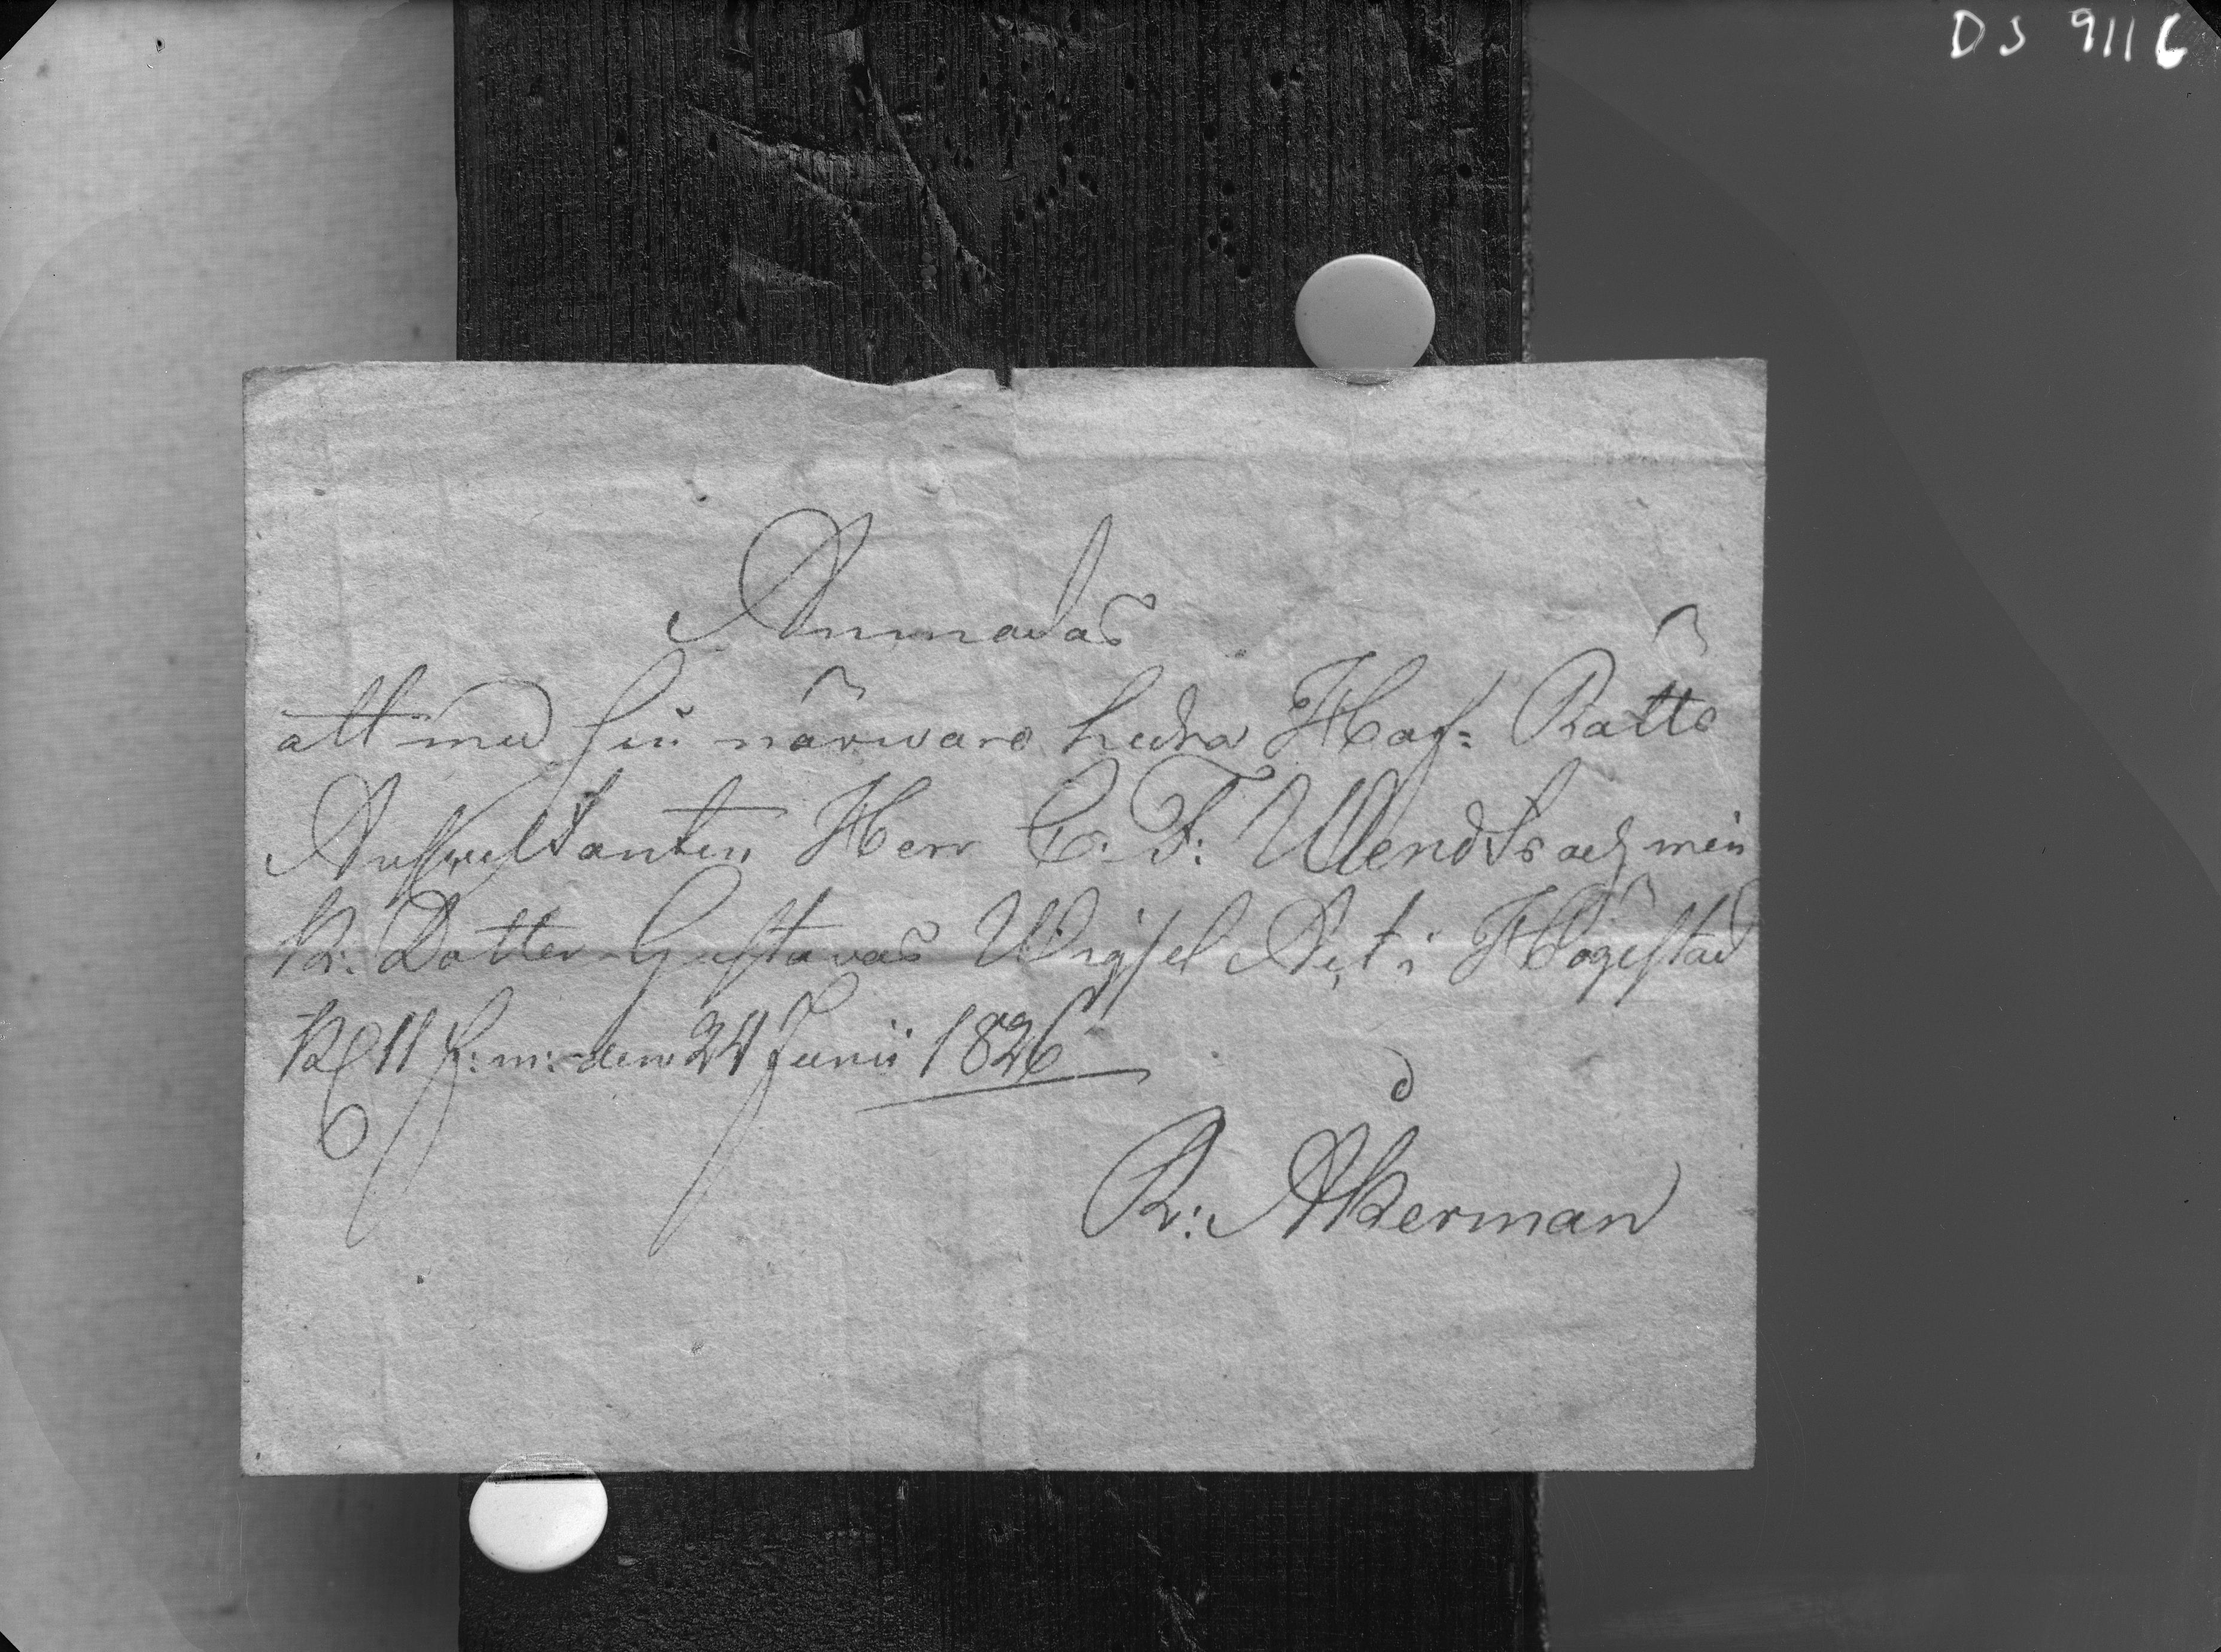 DS 9116
Anmodas
att med sin närwaro hedra Hof= Rätts
Auscultanten Herr C. F: Wendts och min
K: Dotter Gustavas Wigsel Act i Högestad
Kl 11 f: m: den 24 Junii 1826
R: Åkerman